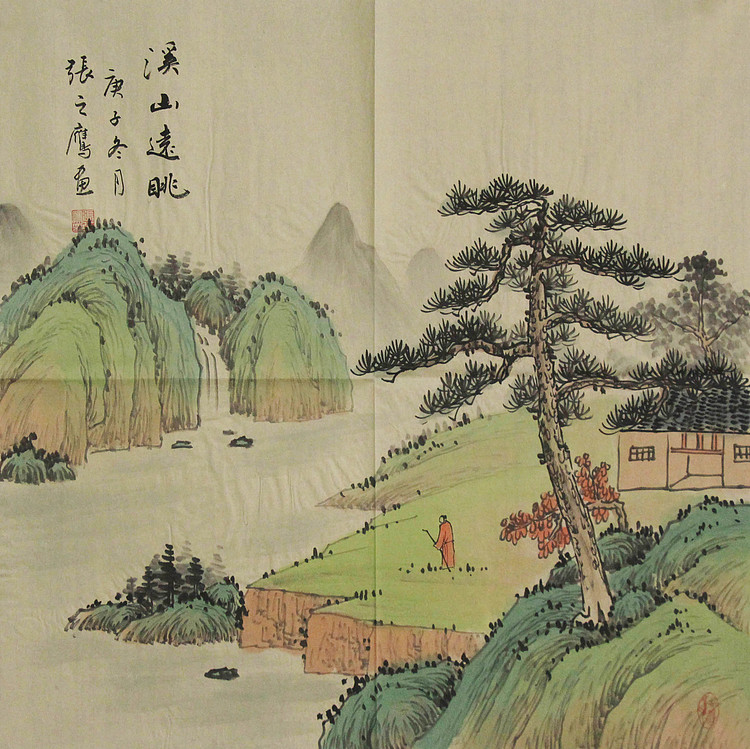 溪山遠眺
庚子冬月
張之鷹画